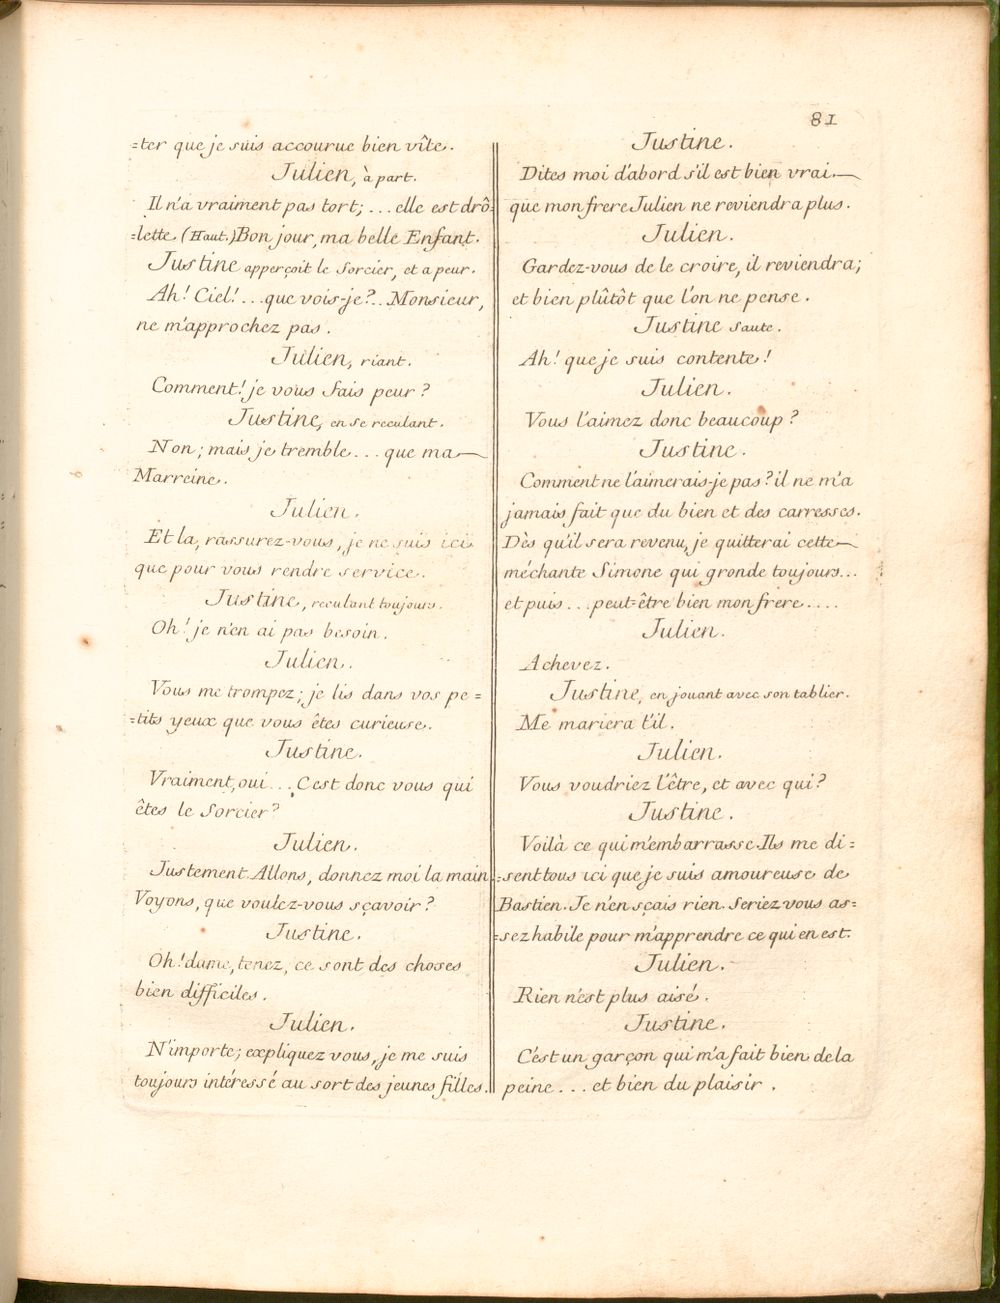 81
=ter que je suis accourue bien vîte.
Julien, à part.
Il n'a vraiment pas tort; ... elle est drô=
=lette. (Haut.) Bon jour, ma belle Enfant.
Justine apperçoit le Sorcier, et a peur.
Ah! Ciel! ... que vois-je? .. Monsieur,
ne m'approchez pas.
Julien, riant.
Comment! je vous fais peur?
Justine, en se reculant.
Non; mais je tremble ... que ma
Marreine.
Julien.
Et la, rassurez-vous, je ne suis ici
que pour vous rendre service.
Justine, reculant toujours.
Oh! je n'en ai pas besoin.
Julien.
Vous me trompez; je lis dans vos pe=
=tits yeux que vous êtes curieuse.
Justine.
Vraiment, oui ... C'est donc vous qui
êtes le Sorcier?
Julien.
Justement. Allons, donnez moi la main
Voyons, que voulez-vous sçavoir?
Justine.
Oh! dame, tenez, ce sont des choses
bien difficiles.
Julien.
N'importe; expliquez vous, je me suis
toujours intéressé au sort des jeunes filles.
Justine.
Dites moi d'abord s'il est bien vrai
que mon frere Julien ne reviendra plus.
Julien.
Gardez-vous de le croire, il reviendra;
et bien plûtôt que l'on ne pense.
Justine saute.
Ah! que je suis contente!
Julien.
Vous l'aimez donc beaucoup?
Justine.
Comment ne l'aimerais-je pas? il ne m'a
jamais fait que du bien et des carresses.
Dès qu'il sera revenu, je quitterai cette
méchante Simone qui gronde toujours...
et puis ... peut=être bien mon frere ....
Julien.
Achevez.
Justine, en jouant avec son tablier.
Me mariera t'il.
Julien.
Vous voudriez l'être, et avec qui?
Justine.
Voilà ce qui m'embarrasse. Ils me di=
=sent tous ici que je suis amoureuse de
Bastien. Je n'en sçais rien. Seriez vous as=
=sez habile pour m'apprendre ce qui en est.
Julien.
Rien n'est plus aisé.
Justine.
C'est un garçon qui m'a fait bien de la
peine ... et bien du plaisir.